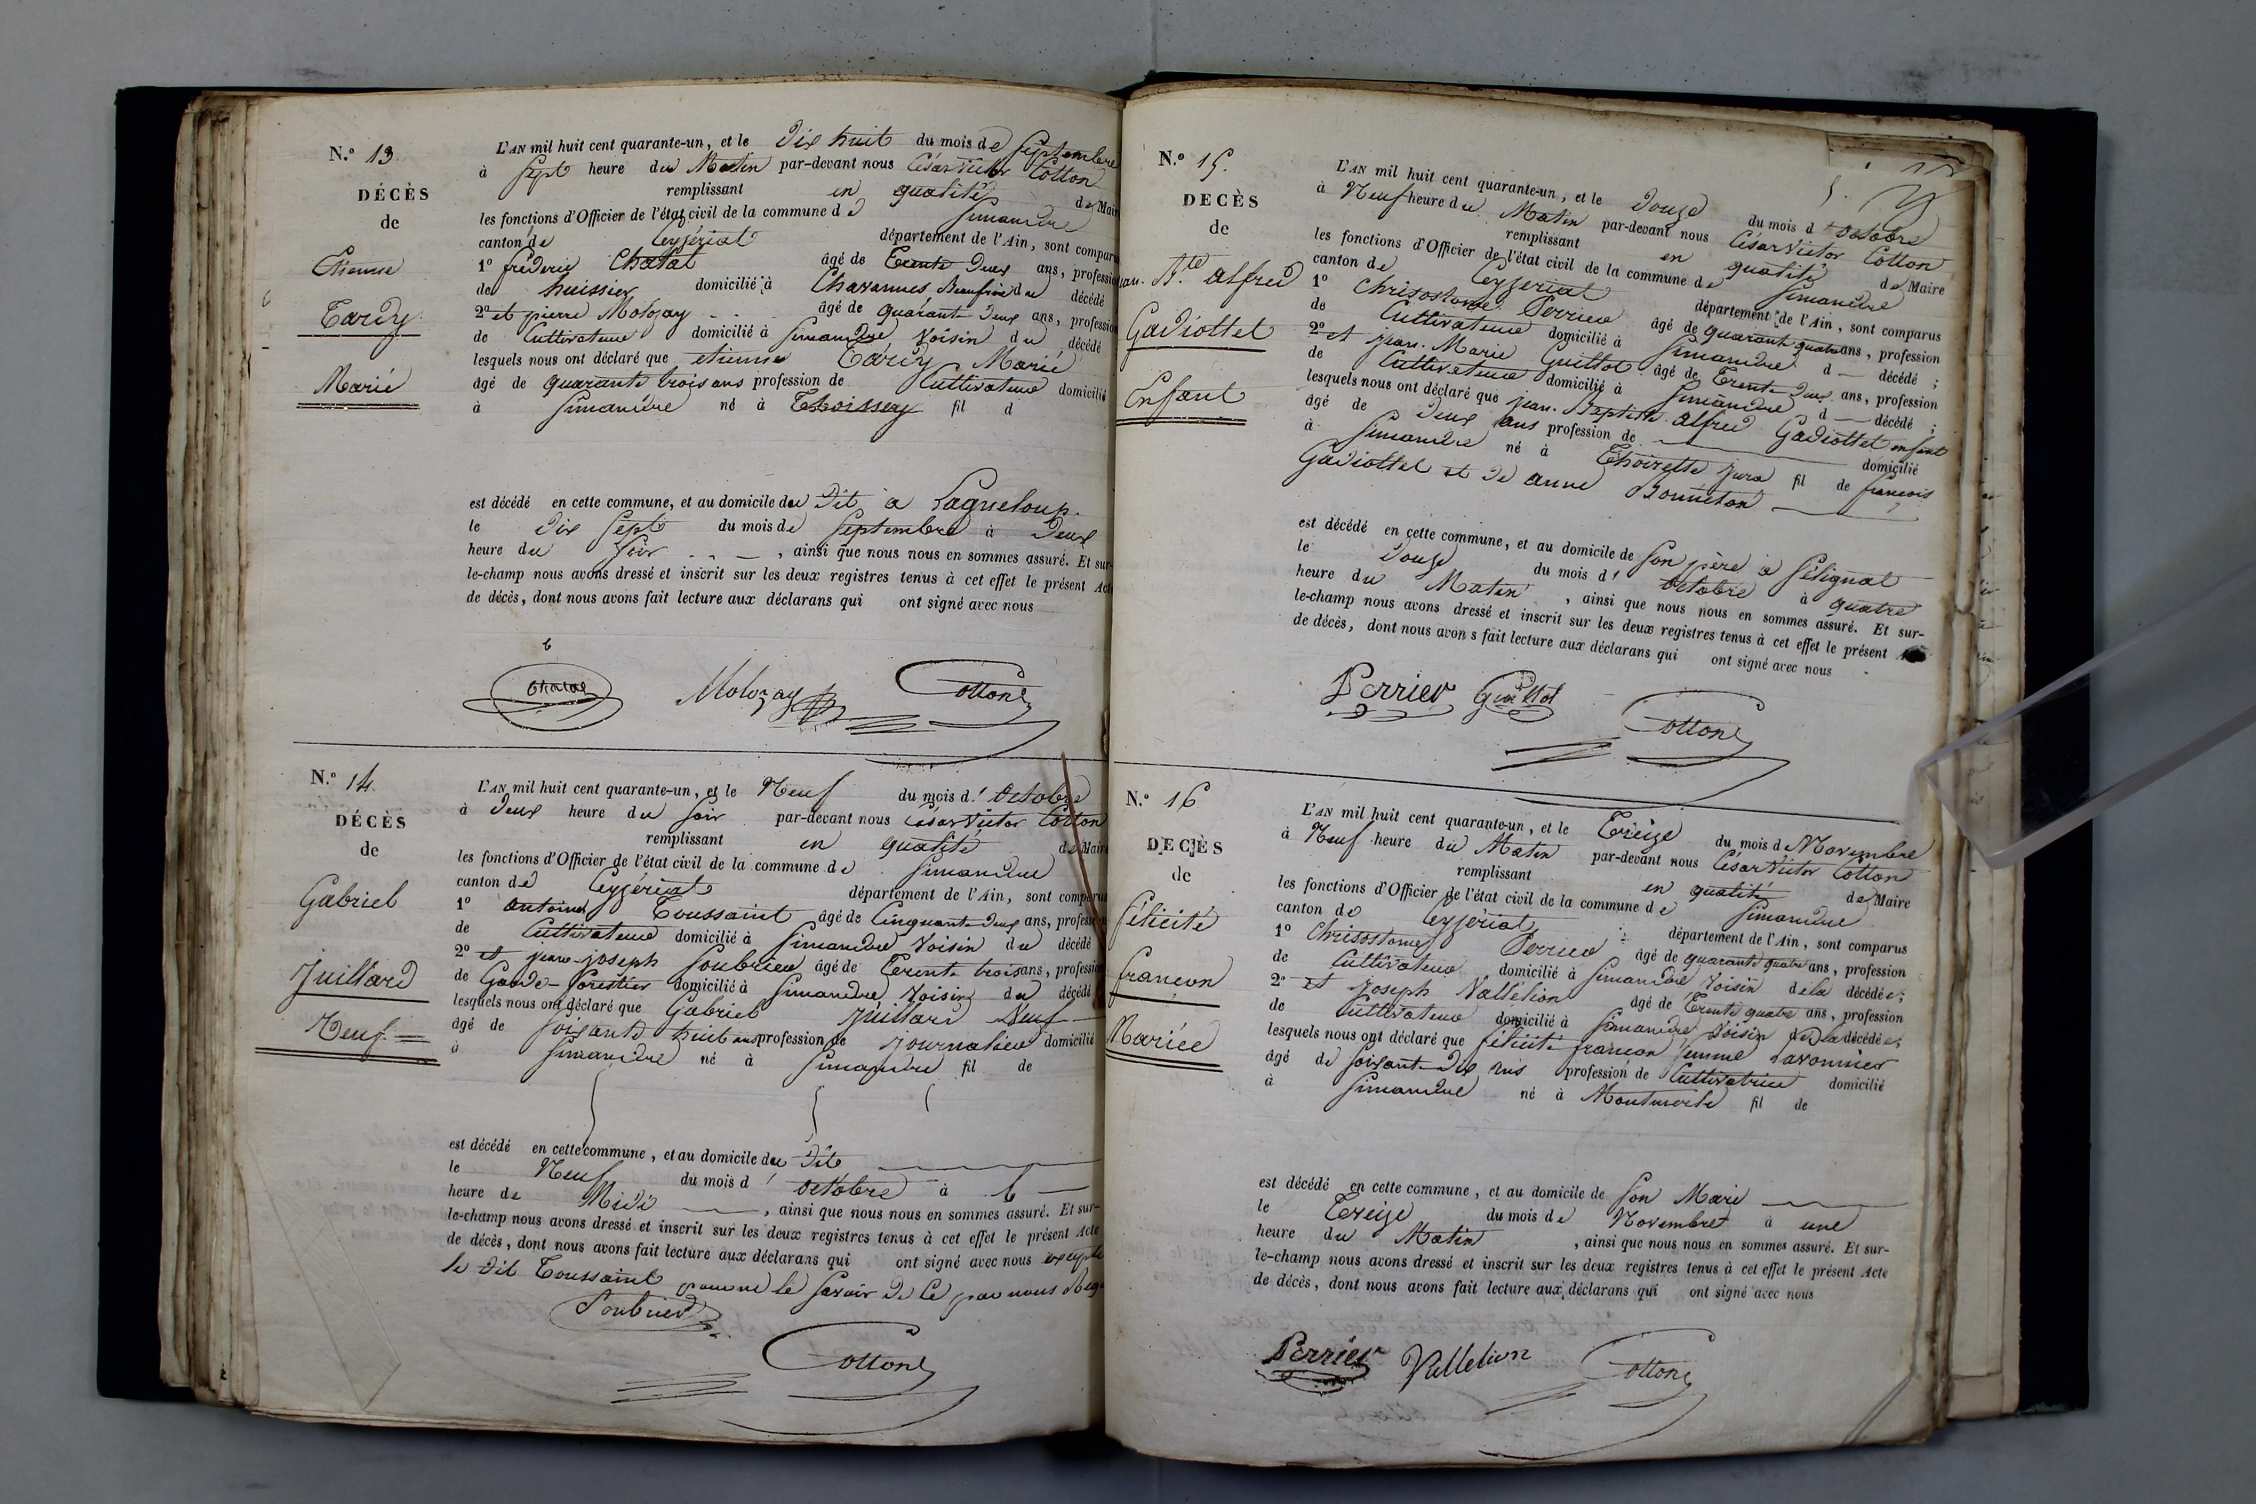 N.º 13.
DÉCÈS
de
Etienne
Tardy
Marié
L'AN mil huit cent quarante-un, et le Dix huit du mois de Septembre
à Sept heure du Matin par-devant nous César Victor Cotton
remplissant en qualité de Maire
les fonctions d'Officier de l'état civil de la commune de Simandre
canton de Ceyzériat département de l'Ain, sont comparus
1º frédéric Chatal âgé de Trente Deux ans, profession
de huissier domicilié à Chavannes du décédé
2º et pierre Molozay âgé de quarante Deux ans, profession
de Cultivateur domicilié à Simandre Voisin du décédé
lesquels nous ont déclaré que etienne Tardy Marié
âgé de quarante trois ans profession de Cultivateur domicilié
à Simandre né à Thoissey fil d
est décédé en cette commune, et au domicile du Dit a Lagueloup.
le Dix Sept du mois de Septembre à Deux
heure du Soir, ainsi que nous nous en sommes assuré. Et sur-
le-champ nous avons dressé et inscrit sur les deux registres tenus à cet effet le présent Acte
de décès, dont nous avons fait lecture aux déclarans qui ont signé avec nous
Chatal Molozay Cotton
N.º 14.
DÉCÈS
de
Gabriel
Juillard
Veuf
L'AN mil huit cent quarante-un, et le Neuf du mois d'octobre
à Deux heure du Soir par-devant nous César Victor Cotton
remplissant en qualité de Maire
les fonctions d'Officier de l'état civil de la commune de Simandre
canton de Ceyzériat département de l'Ain, sont comparus
1º antoine Toussaint âgé de Cinquante Deux ans, profession
de Cultivateur domicilié à Simandre Voisin du décédé
2º et jean-joseph Soubrier âgé de Trente trois ans, profession
de Garde-forestier domicilié à Simandre Voisin du décédé
lesquels nous ont déclaré que Gabriel Juillard Veuf
âgé de Soixante huit ans profession de Journalier domicilié
à Simandre né à Simandre fil de
est décédé en cette commune, et au domicile du Dit
le Neuf du mois d'octobre à
heure de Midi, ainsi que nous nous en sommes assuré. Et sur-
le-champ nous avons dressé et inscrit sur les deux registres tenus à cet effet le présent Acte
de décès, dont nous avons fait lecture aux déclarans qui ont signé avec nous excepté
le dit Toussaint pour ne le Savoir De Ce par nous
Soubrier
Cotton
N.º 15.
DECÈS
de
Jean. Bte alfred
Gadiollet
Enfant
L'AN mil huit cent quarante-un, et le Douze du mois d'octobre
à Neuf heure du Matin par-devant nous César Victor Cotton
remplissant en qualité de Maire
les fonctions d'Officier de l'état civil de la commune de Simandre
canton de Ceyzeriat département de l'Ain, sont comparus
1º Chrisostome Perrier âgé de quarante quatre ans, profession
de Cultivateur domicilié à Simandre d décédé;
2º et jean. Marie Guillot âgé de Trente Deux ans, profession
de Cultivateur domicilié à Simandre d décédé;
lesquels nous ont déclaré que jean. Baptiste alfred Gadiollet enfant
âgé de Deux ans profession de domicilié
à Simandre né à Thoirette Jura fil de françois
Gadiollet et De anne Bonneton
est décédé en cette commune, et au domicile de Son père a Sélignat
le Douze du mois d'octobre à quatre
heure du Matin, ainsi que nous nous en sommes assuré. Et sur-
le-champ nous avons dressé et inscrit sur les deux registres tenus à cet effet le présent Acte
de décès, dont nous avons fait lecture aux déclarans qui ont signé avec nous
Perrier Guillot
Cotton
N.º 16
DECÈS
de
félicité
francon
Mariée
L'AN mil huit cent quarante-un, et le Treize du mois de Novembre
à Neuf heure du Matin par-devant nous César Victor Cotton
remplissant en qualité de Maire
les fonctions d'Officier de l'état civil de la commune de Simandre
canton de Ceyzériat département de l'Ain, sont comparus
1º Chrisostome Perrier âgé de quarante quatre ans, profession
de Cultivateur domicilié à Simandre Voisin de la décédée;
2º et Joseph Vallelion âgé de Trente quatre ans, profession
de Cultivateur domicilié à Simandre Voisin de la décédée;
lesquels nous ont déclaré que félicité francon femme Savonnier
âgé de Soixante Dix ans profession de Cultivatrice domicilié
à Simandre né à Montmerle fil de
est décédé en cette commune, et au domicile de Son Mari
le Treize du mois de Novembre à une
heure du Matin, ainsi que nous nous en sommes assuré. Et sur-
le-champ nous avons dressé et inscrit sur les deux registres tenus à cet effet le présent Acte
de décès, dont nous avons fait lecture aux déclarans qui ont signé avec nous
Perrier Vallelion Cotton